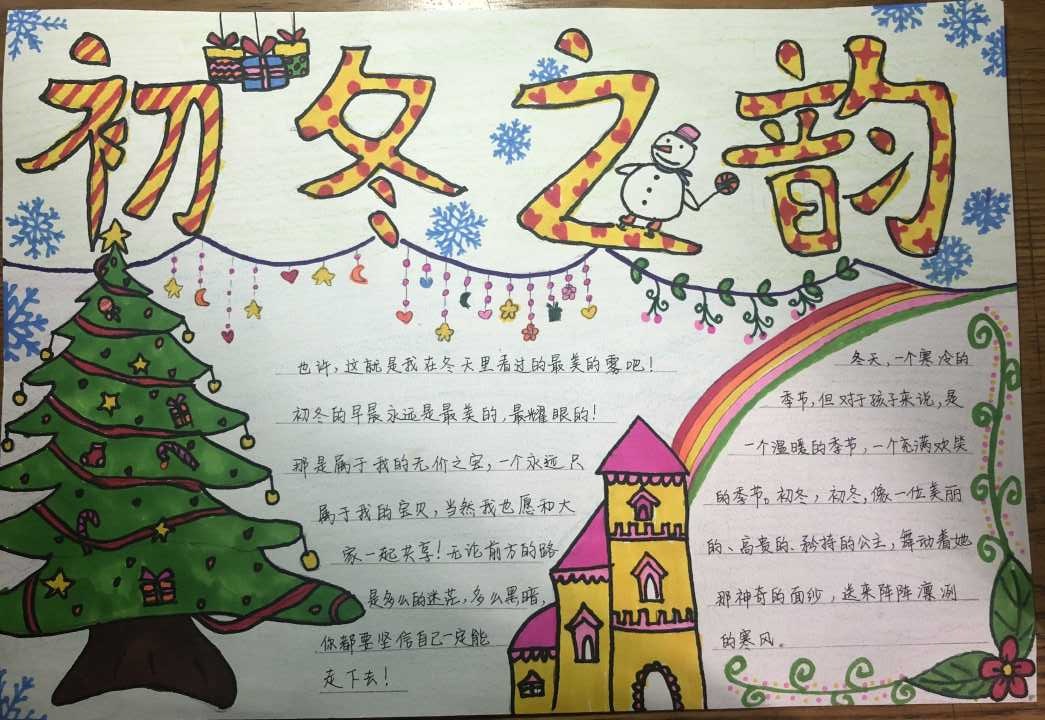 初冬之韵
也许,这就是我在冬天里看过的最美的雾吧!
初冬的早晨永远是最美的,最耀眼的!
那是属于我的无价之宝,一个永远只
属于我的宝贝,当然我也愿和大
家一起共享!无论前方的路
是多么的迷茫,多么黑暗,
你都要坚信自己一定能
走下去!
冬天,一个寒冷的
季节,但对于孩子来说,是
一个温暖的季节,一个充满欢笑
的季节。初冬,初冬,像一位美丽
的、高贵的、矜持的公主,舞动着她
那神奇的面纱,送来阵阵凛冽
的寒风。